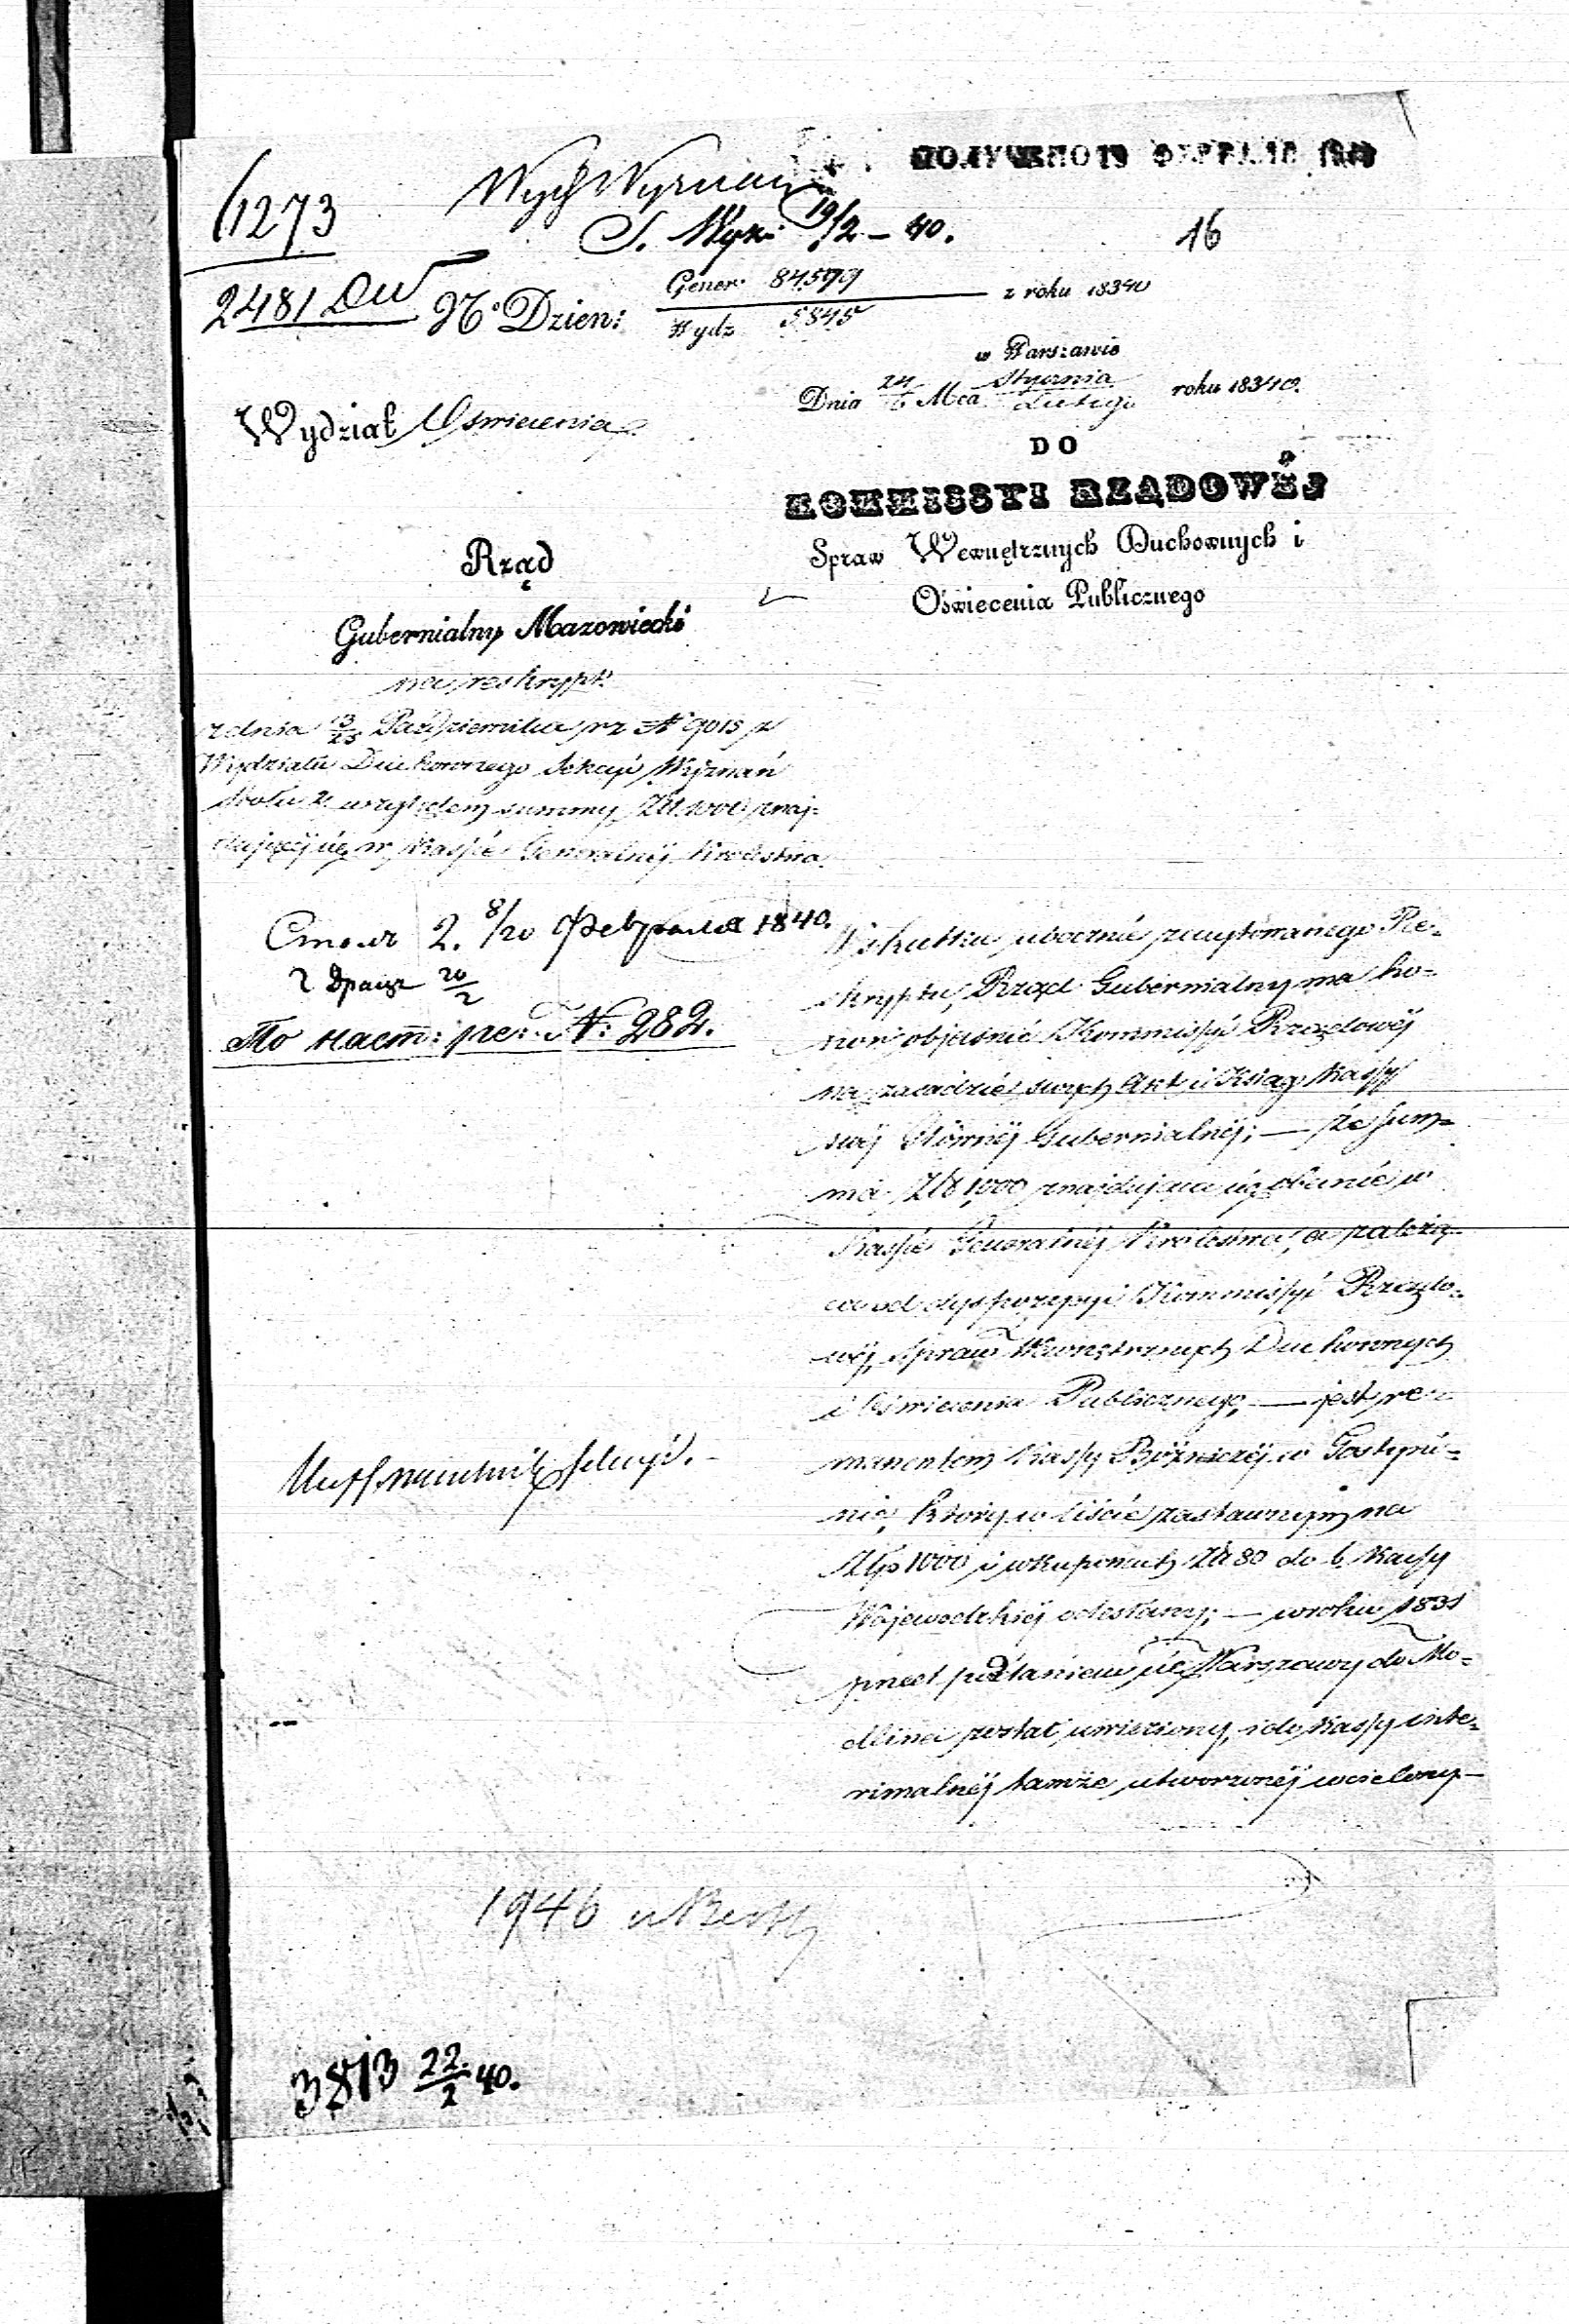 ПОЛУЧЕНО 19 ФЕВРАЛЯ 1840
1273
Wyd Wyznań
S. Wyzn: 19/2 – 40.
16
2481 DW
No Dzien:
Gener: 84579
Wydz 5845
z roku 1834
w Warszawie
Dnia 24/5 Mca Stycznia/Lutego roku 1840.
Wydział Oświecenia
DO
KOMMISSYI RZĄDOWÉJ
Spraw Wewnętrznych Duchownych i
Oświecenia Publicznego
Rząd
Gubernialny Mazowiecki
na reskrypt
z dnia 13/25 Października rz No 9015 z
Wydziału Duchownego Sekcyi Wyznań
Stołu 2 względem summy Złł. 1000 znaj-
dującéj się w Kassie Generalnéj Królestwa.
Столъ 2. 8/20 Февраля 1840.
20/2
По наст: ре: N: 282.
W skutku ubocznie zacytowanego Re-
skryptu, Rząd Gubernialny ma ho-
nor objaśnić Kommissyi Rządowéj
na zasadzie swych Akt i Ksiąg Kassy
swéj Głównéj Gubernialnéj; — że sum-
ma Złł 1000 znajdująca się obecnie w
Kassie Generalnéj Królestwa, a zależą-
ca od dyspozycyi Kommissyi Rządo-
wéj Spraw Wewnętrznych Duchownych
i Oświecenia Publicznego, — jest re-
manentem Kassy Bóżniczéj w Gostyni-
nie, który w liście zastawnym na
Złp 1000 i w kuponach Złł 80 do b. Kassy
Wojewódzkiéj odesłany; — w roku 1831
przed poddaniem się Warszawy do Mo-
dlina został uwieziony, i do Kassy inte-
rimalnéj tamże utworzonéj wcielony —
Naczelnik Sekcyi.
1946
3813 22/2 40.